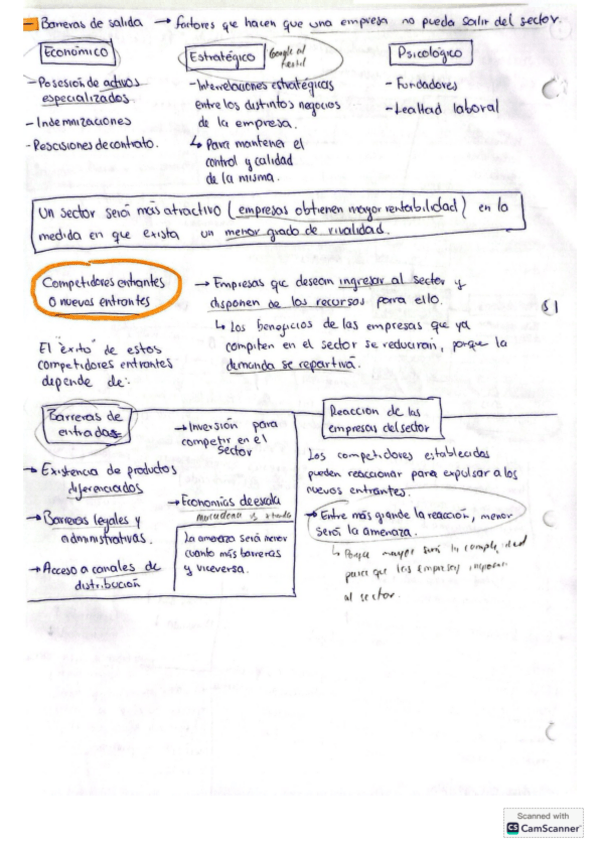 - Barreras de salida → factores que hacen que una empresa no pueda salir del sector.
Económico
- Posesión de activos
especializados
- Indemnizaciones
- Rescisiones de contrato.
Estratégico
Google al
- Interrelaciones estratégicas
entre los distintos negocios
de la empresa.
↳ Para mantener el
control y calidad
de la misma.
Psicológico
- Fundadores
- Lealtad laboral
Un sector será más atractivo (empresas obtienen mayor rentabilidad) en la
medida en que exista un menor grado de rivalidad.
Competidores entrantes
o nuevos entrantes
→ Empresas que desean ingresar al sector y
disponen de los recursos para ello.
↳ Los beneficios de las empresas que ya
compiten en el sector se reducirán, porque la
demanda se repartirá.
El "éxito" de estos
competidores entrantes
depende de:
Barreras de
entradas
→ Existencia de productos
diferenciados
→ Barreras legales y
administrativas.
→ Acceso a canales de
distribución
→ Inversión para
competir en el
sector
→ Economías de escala
La amenaza será menor
cuanto más barreras
y viceversa.
Reacción de las
empresas del sector
Los competidores establecidos
pueden reaccionar para expulsar a los
nuevos entrantes.
→ Entre más grande la reacción, menor
será la amenaza.
↳ mayor será la complejidad
para que las empresas
al sector.
Scanned with
CS CamScanner